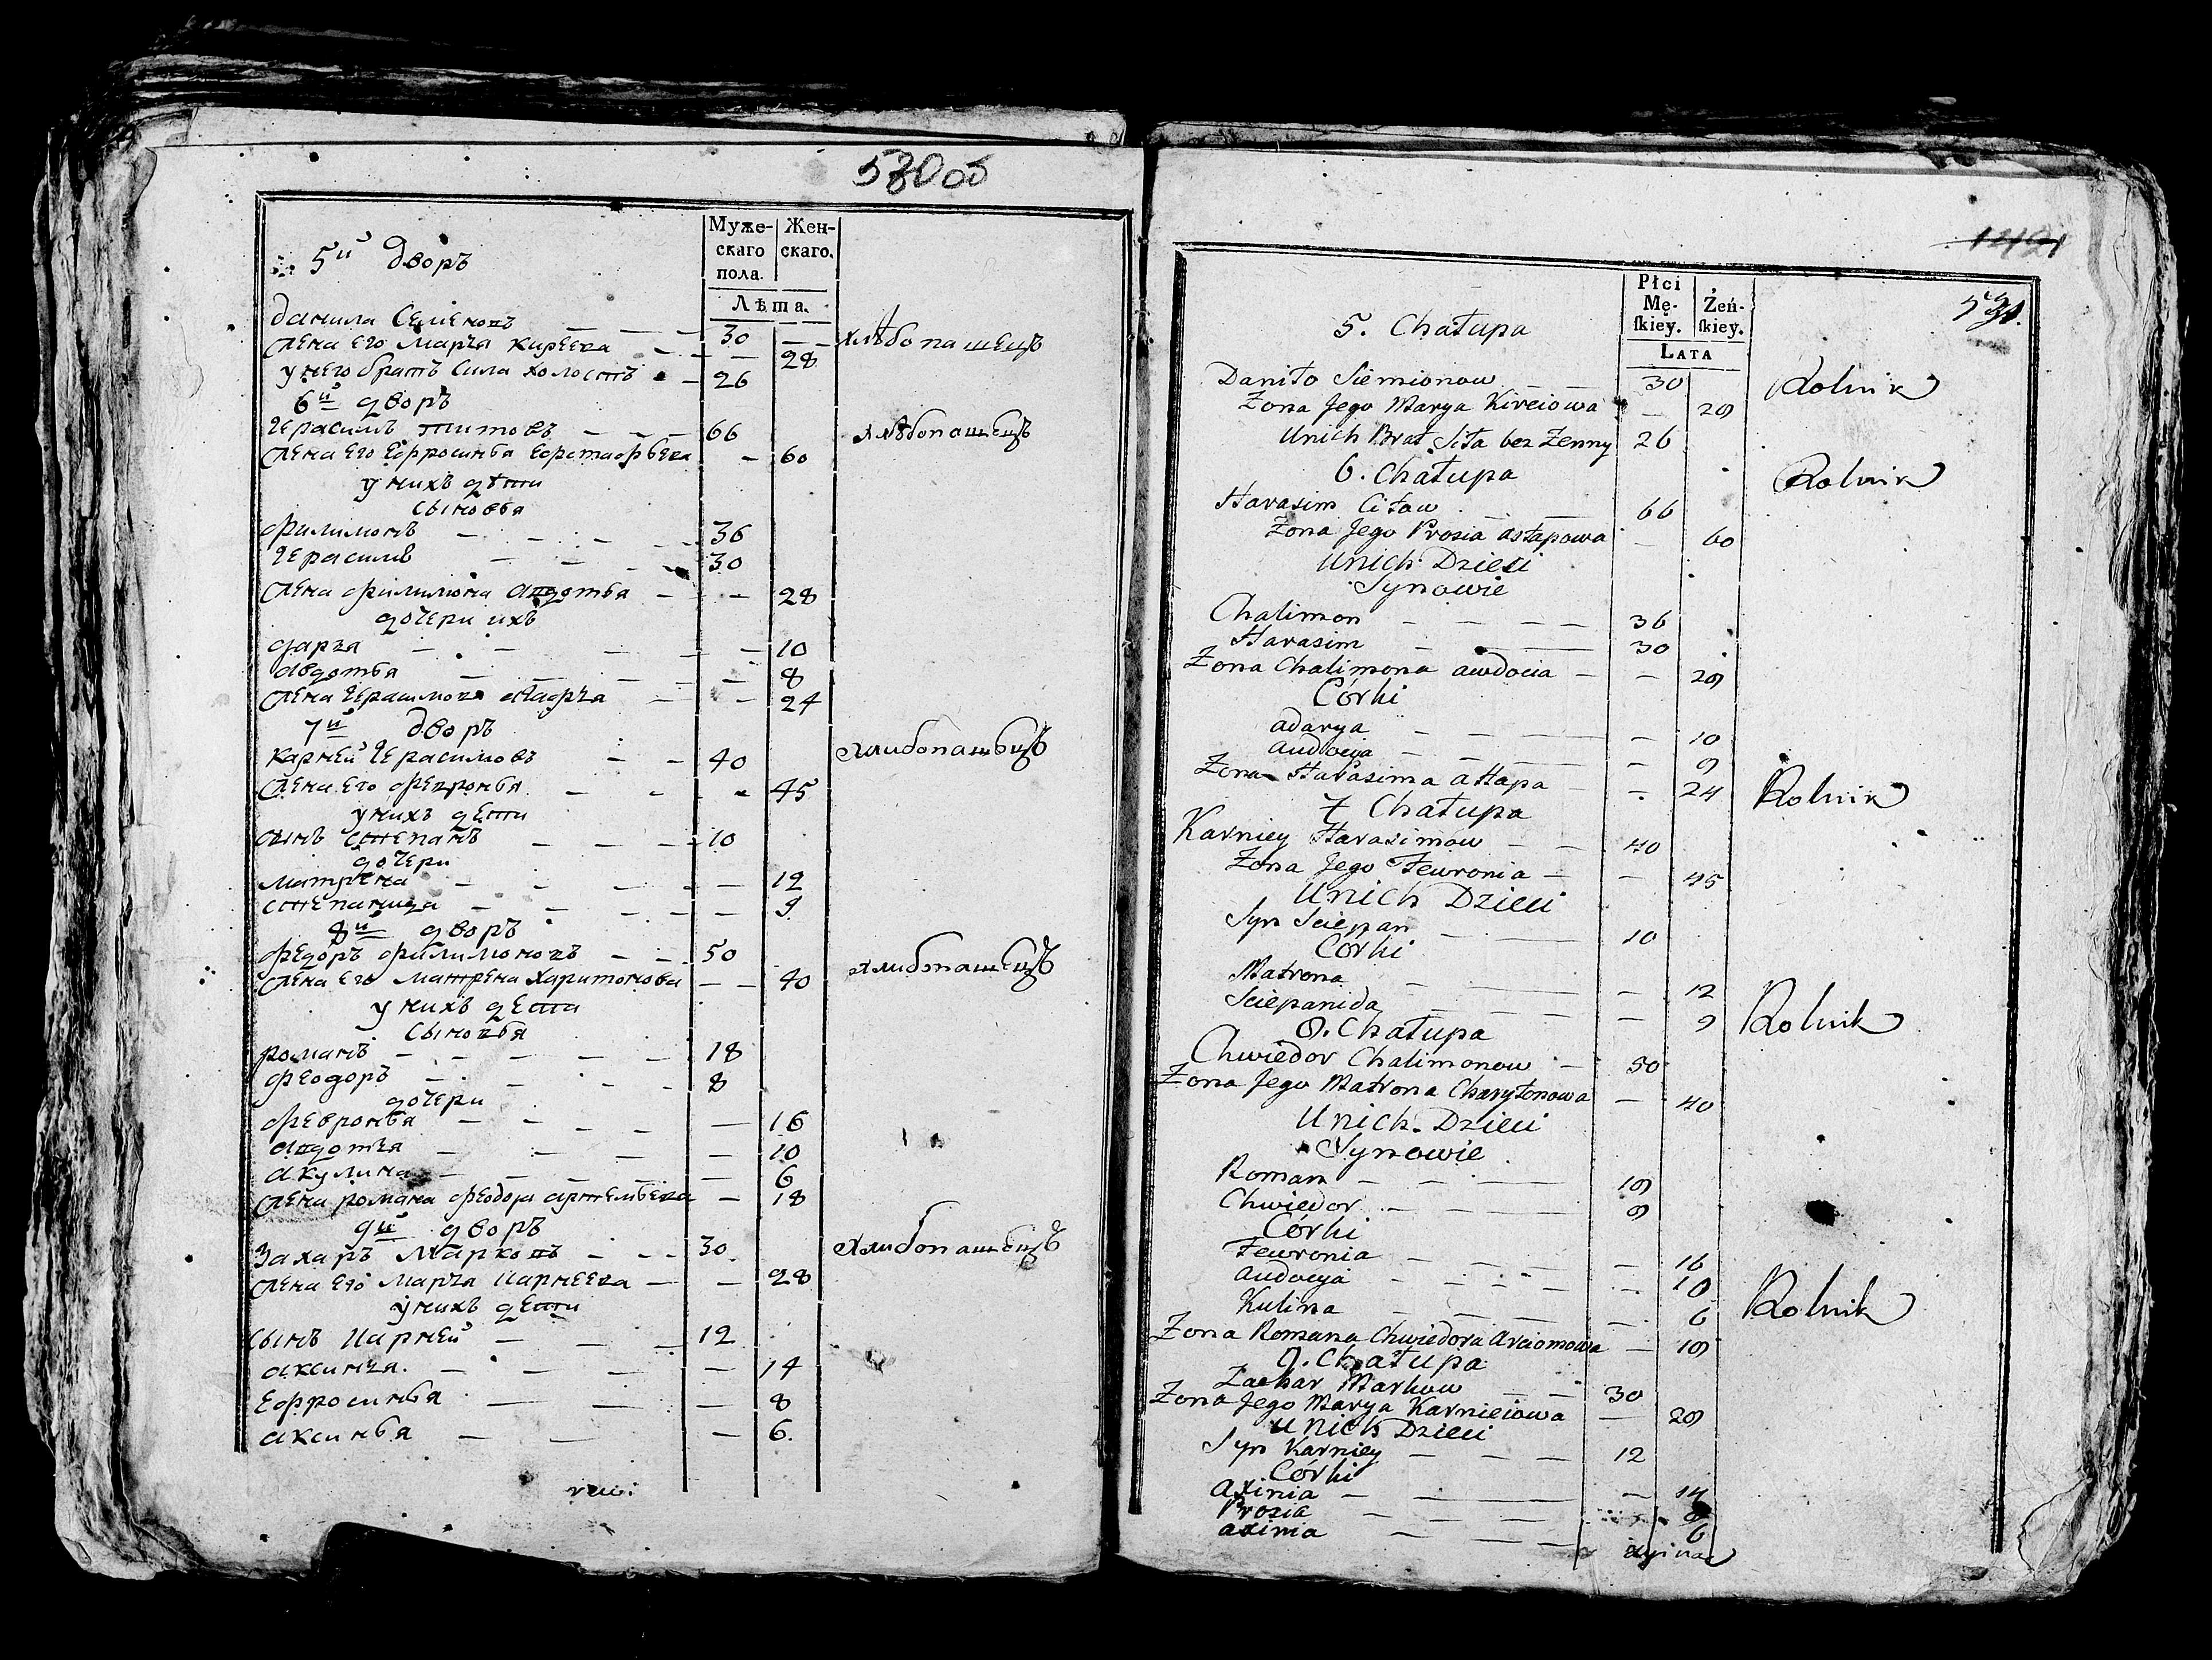 530 об
Муже- Жен-
скаго скаго.
пола.
Лѣта.
5й дворъ
данила Семеновъ — — — 30 — — хлѣбопашецъ
жена его марья киреева — — — 28
у него братъ Сила холостъ — 26
6й дворъ
Герасимъ титовъ — — — 66 хлѣбопашецъ
жена его Ефросинья Ефстафьева — 60
у нихъ дѣти
сыновья
филимонъ — — — — 36
Герасимъ — — — 30
жена филимона авдотья — — 28
дочери ихъ
дарья — — — — — 10
авдотья — — — — — 8
жена Герасимова агафья — — 24
7й дворъ хлибопашецъ
карней Герасимовъ — — 40
жена его февронья — — — 45
у нихъ дети
сынъ степанъ — — — 10
дочери
матрена — — — — — 12
степанида — — — — — 9
8й дворъ
федоръ филимоновъ — — 50 хлибопашецъ
жена его матрена харитонова — — 40
у нихъ дети
сыновья
романъ — — — — — 18
феодоръ — — — — 8
дочери
февронья — — — — — 16
авдотья — — — — 10
акулина — — — — — 6
жена романа феодора артемьева — 18
9й дворъ
Захаръ Марковъ — — — 30 хлибопашецъ
жена его марья карнеева — — 28
у нихъ дети
сынъ карней — — — 12
аксинья — — — — — 14
Ефросинья — — — 8
аксинья — — — 6.
1421
531.
Płci Żeń-
Mę- skiey.
skiey.
LATA
5. Chałupa
Daniło Siemionow — — 30 Rolnik
Zona Jego Marya Kireiowa — 28
Unich Brat Siła bez Zenny 26
6. Chałupa Rolnik
Harasim Citow — — 66
Zona Jego Prosia astapowa — 60
Unich Dzieci
Synowie
Chalimon — — — — 36
Harasim — — — 30
Zona Chalimona awdocia — — 28
Córki
adarya — — — — — 10
audocya — — — — — 8
Zona Harasima aHapa — — 24
7 Chałupa Rolnik
Karniey Harasimow — — 40
Zona Jego Fewronia — — 45
Unich Dzieci
Syn Sciepan — — 10
Córki
Matrona — — — 12
Sciepanida — — — — 9
8. Chałupa Rolnik
Chwiedor Chalimonow — 50
Zona Jego Matrona Charytonowa — 40
Unich Dzieci
Synowie
Roman — — — 18
Chwiedor — — — 8
Córki
Fewronia — — — — — 16
audocya — — — — — 10
Kulina — — — — — 6
Zona Romana Chwiedora Arciomowa — 18
9. Chałupa Rolnik
Zachar Markow — — 30
Zona Jego Marya Karnieiowa — 28
Unich Dzieci
Syn Karniey — — — 12
Córki
Axinia — — — — 14
Prosia — — — — 8
axinia — — — 6